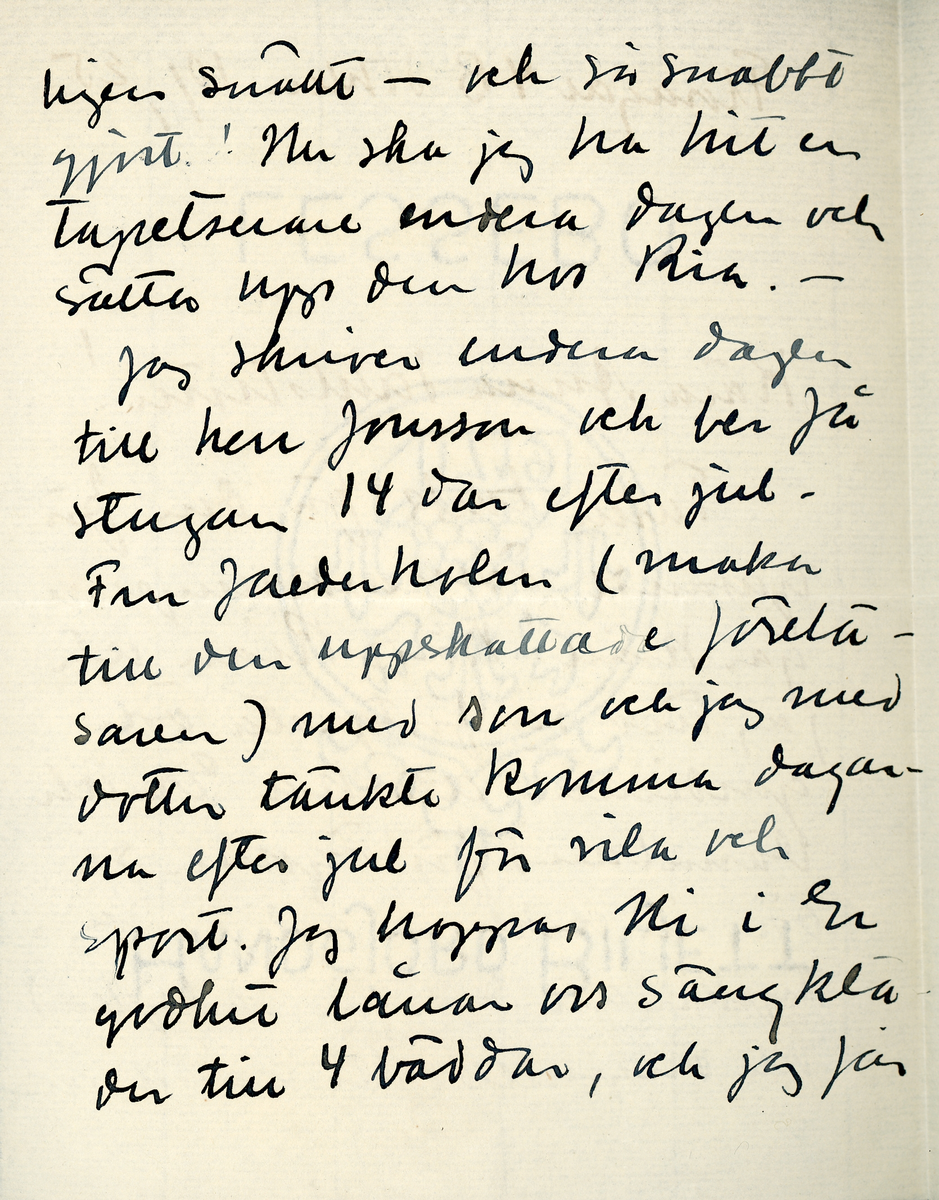 ligen snällt — och så snabbt
gjort! Nu ska jag ha hit en
tapetserare endera dagen och
sätta upp den hos Ria. —
Jag skriver endera dagen
till herr Jonsson och ber få
stugan 14 dar efter jul -
Fru Jaederholm (maka
till den uppskattade förelä-
saren) med son och jag med
dotter tänkte komma dagar-
na efter jul för vila och
sport. Jag hoppas Ni i Er
godhet lånar oss sängklä-
der till 4 bäddar, och jag får